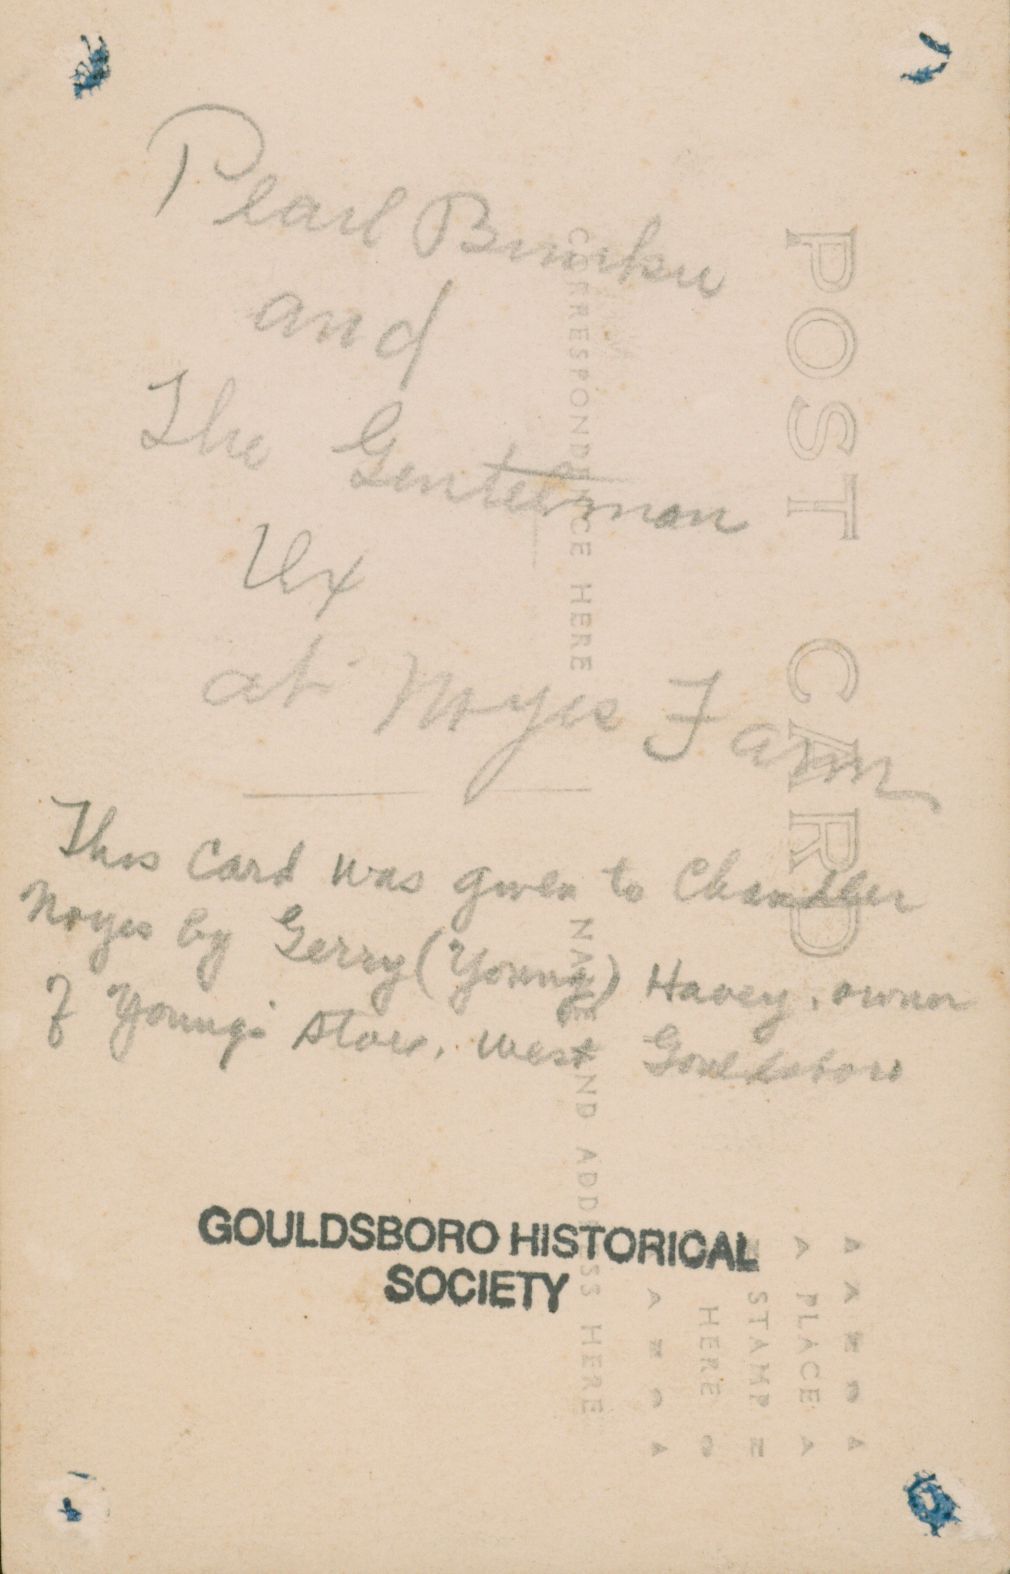 Pearl
and
The Genteelman
at Noyes Farm
This Card was given to Chandler
Noyes by Gerry (Young) Havey, owner
of Young's Store, West Gouldsboro
GOULDSBORO HISTORICAL
SOCIETY
POST CARD
CORRESPONDENCE HERE
NAME AND ADDRESS HERE
PLACE
STAMP
HERE